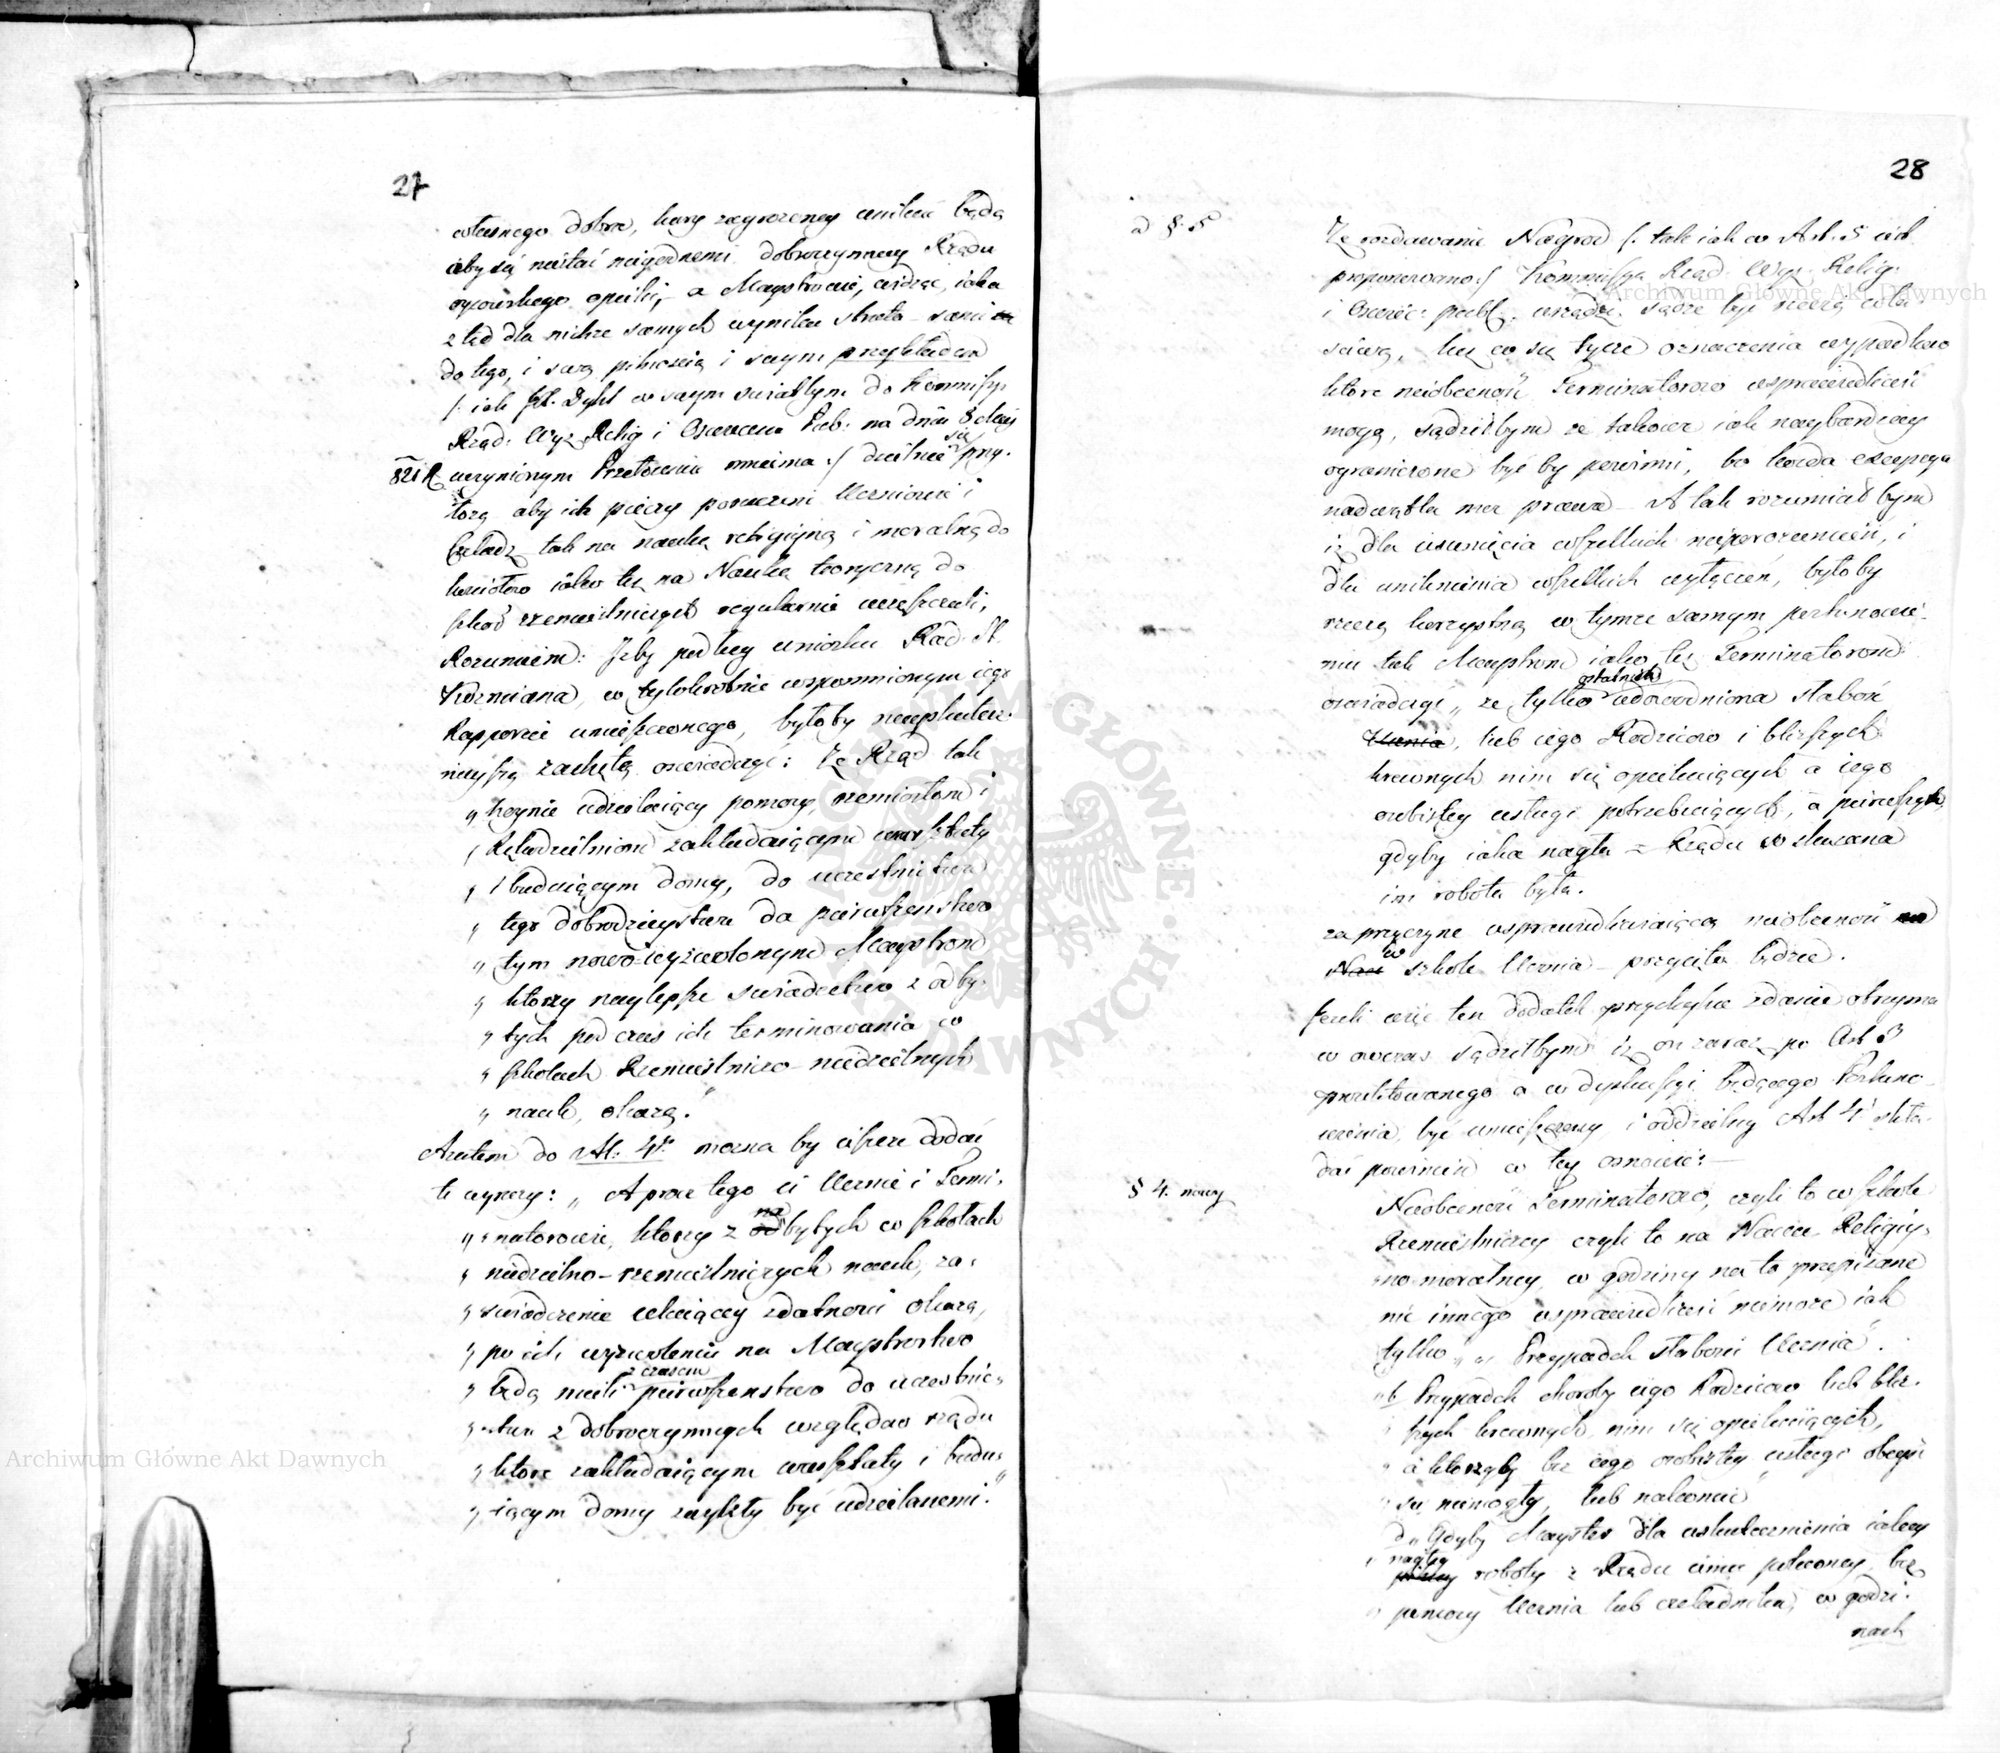 27
własnego dobra, kary zagrożoney unikać będą
aby się nestać niegodnemi dobroczynney Rządu
oycowskiego opieki, a Maystrowie, widząc, iaka
ztąd dla nichże samych wynika strata sami
do tego, i swą pilnością i swym przykładem
/: iak JP. Dyhl w swym światłym do Kommissyi
Rząd: Wyz. Relig i Oświecenia Pub: na dniu 8
821 R. uczynionym Przełożeniu mniema :/ dzielnie się przy-
łożą aby ich pieczy poruczeni Uczniowie i
Czeladź tak na naukę religijną i moralną do
kościołow iako też na Naukę teoryczną do
szkoł rzemieslniczych regularnie uczęszczali,
Rozumiem: Iżby podług wniosku Rad. St.
Koźmiana, w tylokrotnie wspomnionym iego
Rapporcie umieszczonego, byłoby nayskutecz-
nieyszą zachętą oświadczyć: Że Rząd tak
" hoynie udzielaiący pomocy, rzemiosłom i
" Rękodzielniom zakładaiącym warsztaty
" i buduiącym domy, do uczestnictwa
" tego dobrodzieystwa da pierwszeństwo
" tym nowo-wyzwolonym Maystrom
" ktorzy naylepsze swiadectwo z odby-
" tych podczas ich terminowania w
" szkołach Rzemieslniczo-niedzielnych
" nauk, okażą."
Azatem do Art: 4º można by ieszcze dodać
te wyrazy: " A prócz tego ci Uczniowie i Termi-
" natorowie, ktorzy z na
odbytych w szkołach
" niedzielno-rzemieslniczych nauk, za-
" swiadczenie celuiącey zdatności okażą,
" po ich wyzwoleniu na Maystrostwo
z czasem
" będą mieli pierwszenstwo do uczestnic-
" twa z dobroczynnych względow rządu
" ktore zakładaiącym warsztaty i budu-
" iącym domy zwykły być udzielanemi."
28
ad §. 5
Że rozdawanie Nagrod /: tak iak w Art. 5 iest
proponowano :/ Kommissya Rząd. Wyz. Relig.
i Oświec: publ. urządzi sądzę być rzeczą wła-
sciwą, lecz co się tycze oznaczenia wypadkow
ktore nieobecność Terminatorow usprawiedliwić
mogą, sądziłbym że takowe iak naybardziey
ograniczone być by powinni, bo każda excepcya
nadwątla moc prawa. A tak rozumiał bym
iż dla usunięcia wszelkich nieporozumień, i
dla uniknienia wszelkich wyłączeń, byłoby
rzeczą korzystną w tymże samym postanowie-
niu tak Maystrom iako też Terminatorom
ostatnich
oswiadczyć " że tylko udowodniona słabość
Ucznia, lub iego Rodzicow i bliższych
krewnych nim się opiekuiących a iego
osobistey usługi potrzebuiących, a pierwszych
gdyby iaka nagła z Rządu wskazana
im robota była.
za przyczynę usprawiedliwiaiącą nieobecność
w
szkole Ucznia poczyta będzie.
Jeżeli więc ten dodatek przychylne zdanie otrzyma
w owczas sądziłbym iż on zaraz po Art 3
proiektowanego a w dyskussyi będącego Postano-
wienia, być umieszczony i oddzielny Art 4 skła-
dać powinien w tey osnowie: —
§ 4. nowy
Nieobecność Terminatorow, czyli to w szkole
Rzemieslniczey czyli to na Nauce Religiy-
no-moralney, w godziny na to przepisane
nic innego usprawiedliwić niemoże iak
tylko " a, Przypadek słabości Ucznia".
" b Przypadek choroby iego Rodzicow lub bliż-
szych krewnych, nim się opiekuiących,
" a ktorzyby bez iego osobistey usługi obeyść
" się niemogły, lub nakoniec
" d " Gdyby Mayster dla uskutecznienia iakiey
nagłey
roboty z Rządu iemu poleconey, bez
" pomocy Ucznia lub czeladnika, w godzi-
nach
Archiwum Główne Akt Dawnych
Archiwum Główne Akt Dawnych
ARCHIWUM GŁÓWNE AKT DAWNYCH